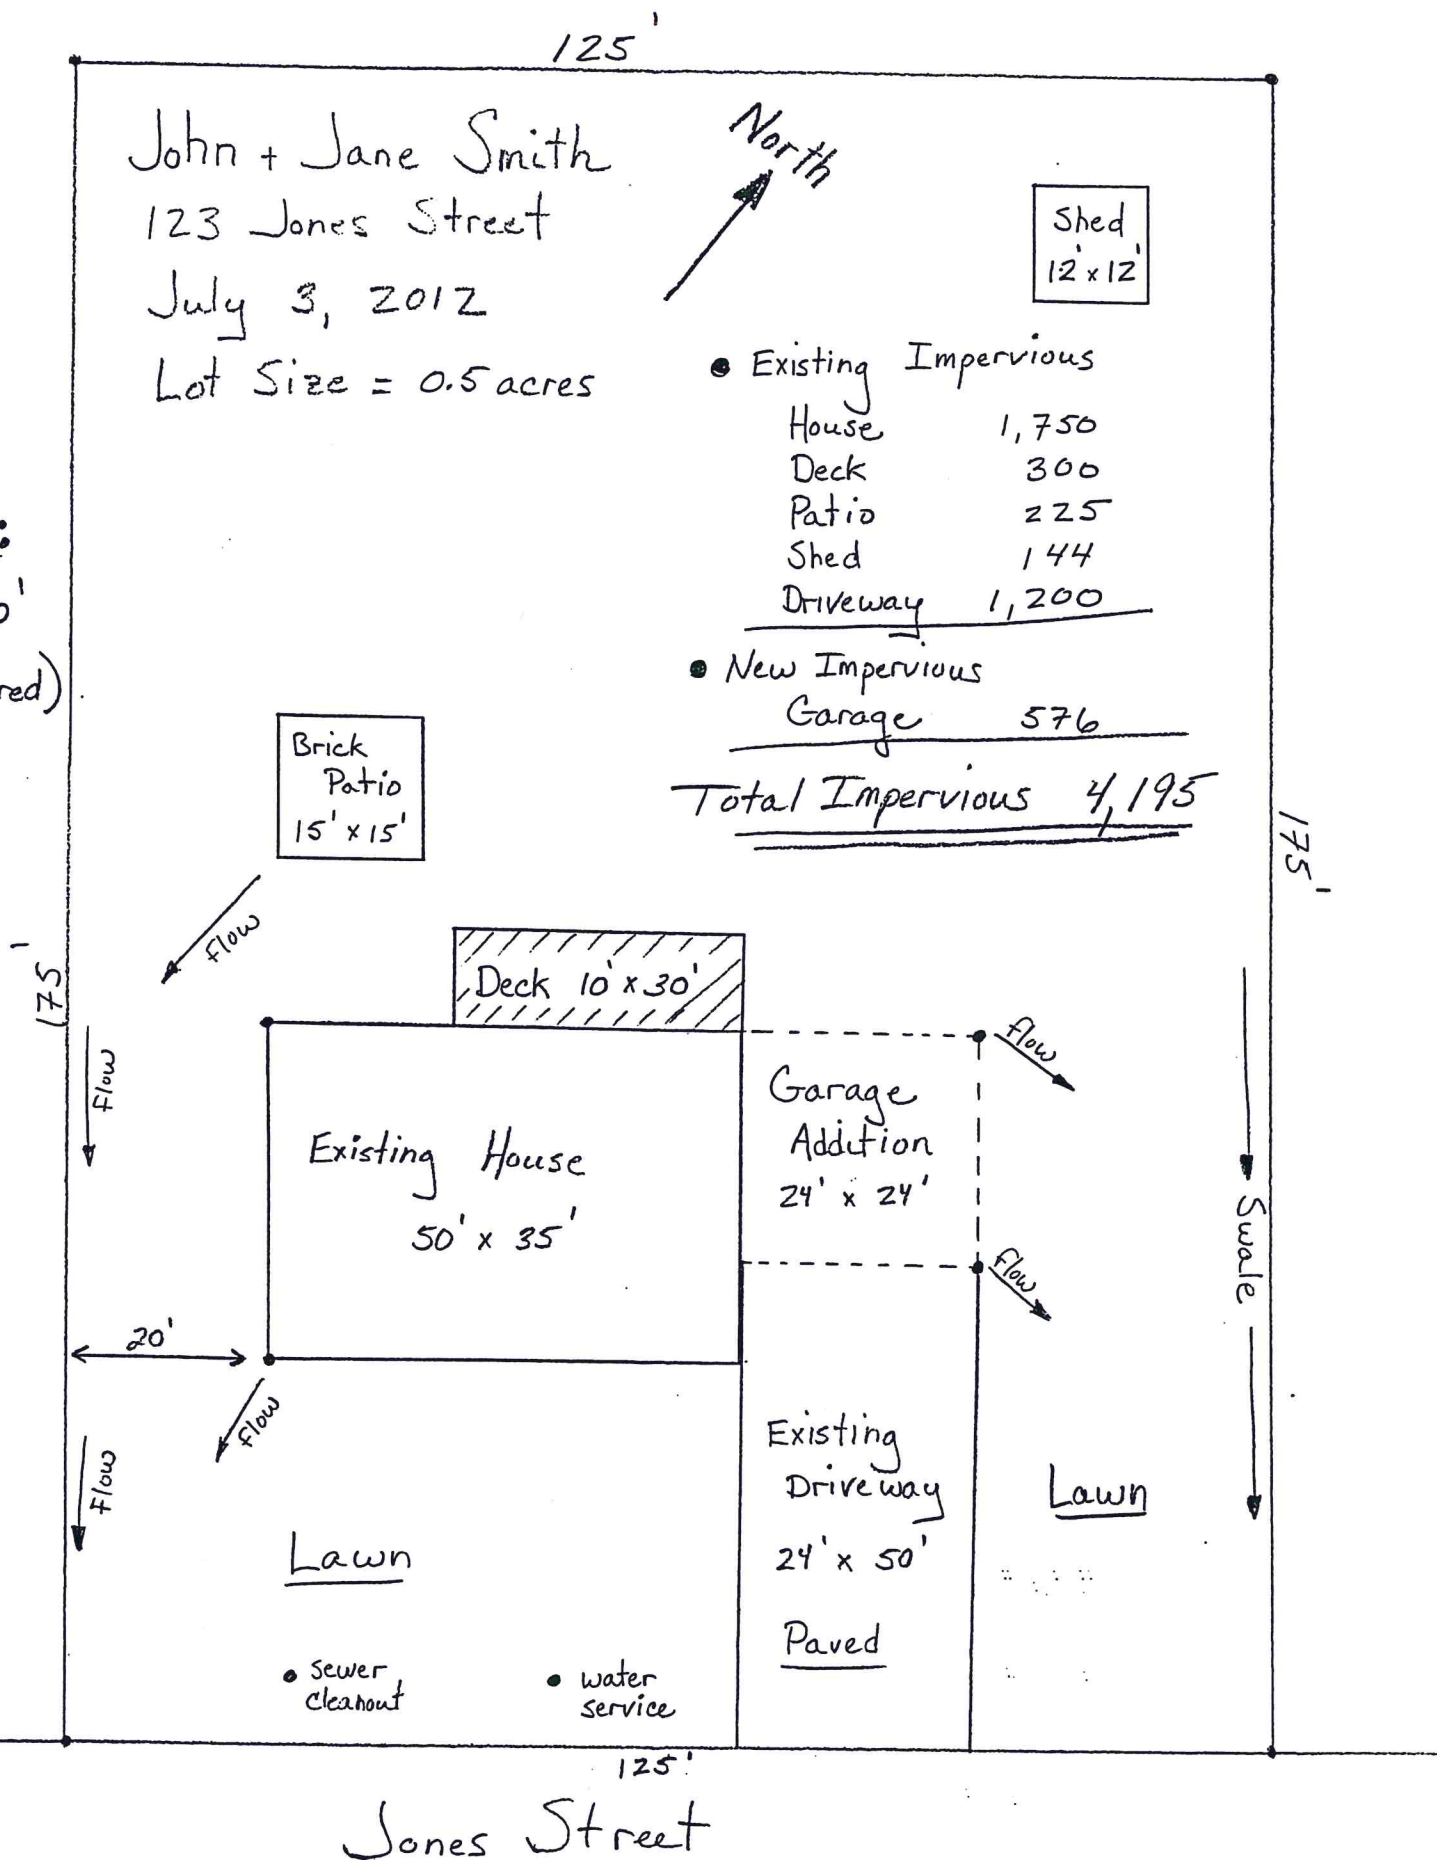 125'
John + Jane Smith
123 Jones Street
July 3, 2012
Lot Size = 0.5 acres
North
Shed
12' x 12'
• Existing Impervious
House 1,750
Deck 300
Patio 225
Shed 144
Driveway 1,200
• New Impervious
Garage 576
Total Impervious 4,195
Brick
Patio
15' x 15'
175'
175'
Flow
Flow
Deck 10' x 30'
Existing House
50' x 35'
Garage
Addition
24' x 24'
Flow
Flow
Swale
20'
Flow
Flow
Existing
Driveway
24' x 50'
Paved
Lawn
Lawn
• sewer
cleanout
• water
service
125'
Jones Street